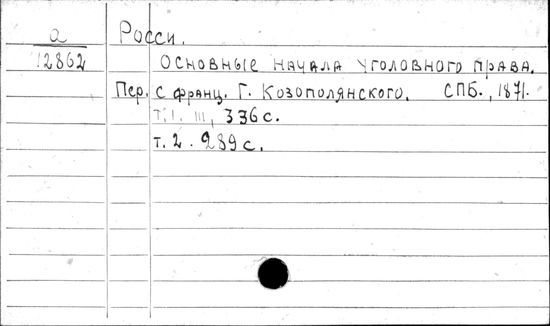 а
12862
Росси.
Основные начала уголовного права.
Пер. с франц. Г. Козополянского. СПБ., 1871.
т. I. III, 336 с.
т. 2. 289 с.